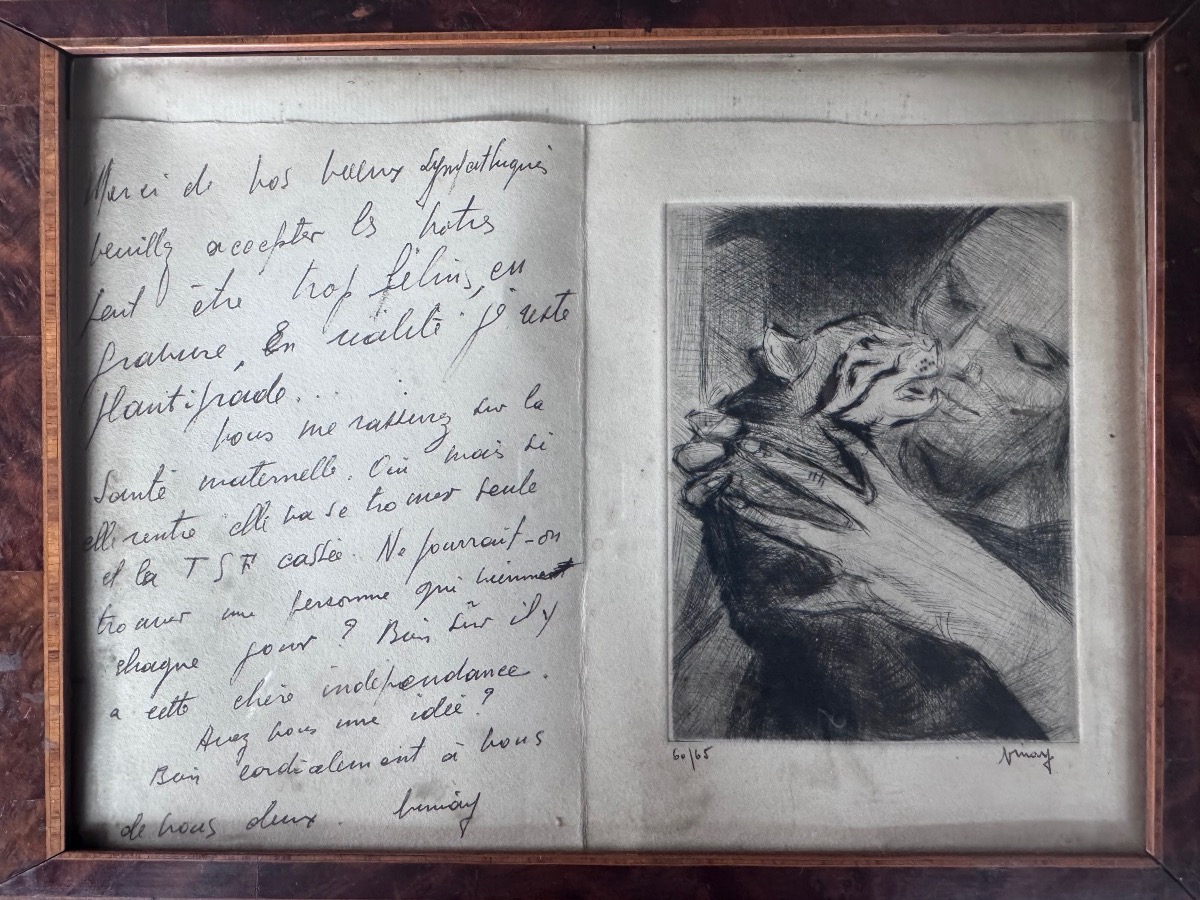 Merci de vos voeux sympathiques
veuillez accepter les notres
peut être trop félins, en
gravure, En réalité je reste
plantigrade...
vous me rassurez sur la
Santé maternelle. Oui mais si
elle rentre elle va se trouver seule
et la TSF cassée. Ne pourrait-on
trouver une personne qui vienne
chaque jour ? Bien sûr il y
a cette chère indépendance.
Avez vous une idée ?
Bien cordialement à vous
de nous deux.
60/65